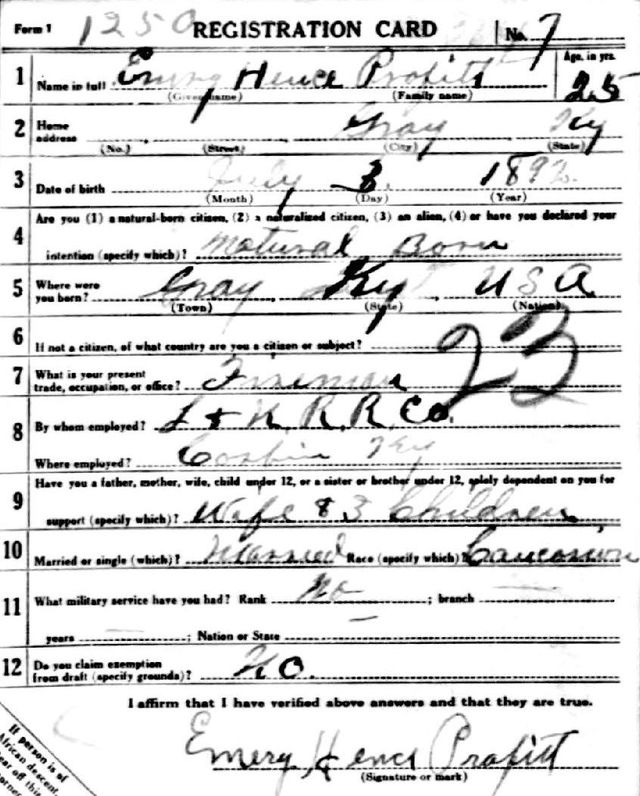 Form 1 1250 REGISTRATION CARD No. 7
1 Name in full Emry Hence Profitt Age, in yrs. 25
(Given name) (Family name)
2 Home address Gray Ky
(No.) (Street) (City) (State)
3 Date of birth July 3. 1892.
(Month) (Day) (Year)
4 Are you (1) a natural-born citizen, (2) a naturalized citizen, (3) an alien, (4) or have you declared your
intention (specify which)? Natural Born
5 Where were you born? Gray, Ky U S A
(Town) (State) (Nation)
6 If not a citizen, of what country are you a citizen or subject?
23
7 What is your present trade, occupation, or office? Fireman
8 By whom employed? L & N. R. R. Co.
Where employed? Corbin Ky
9 Have you a father, mother, wife, child under 12, or a sister or brother under 12, solely dependent on you for
support (specify which)? Wife & 3 Children
10 Married or single (which)? Married Race (specify which)? Caucasion
11 What military service have you had? Rank No ; branch —
years — ; Nation or State —
12 Do you claim exemption from draft (specify grounds)? No.
I affirm that I have verified above answers and that they are true.
Emery Hence Profitt
(Signature or mark)
If person is of
African descent,
tear off this
corner